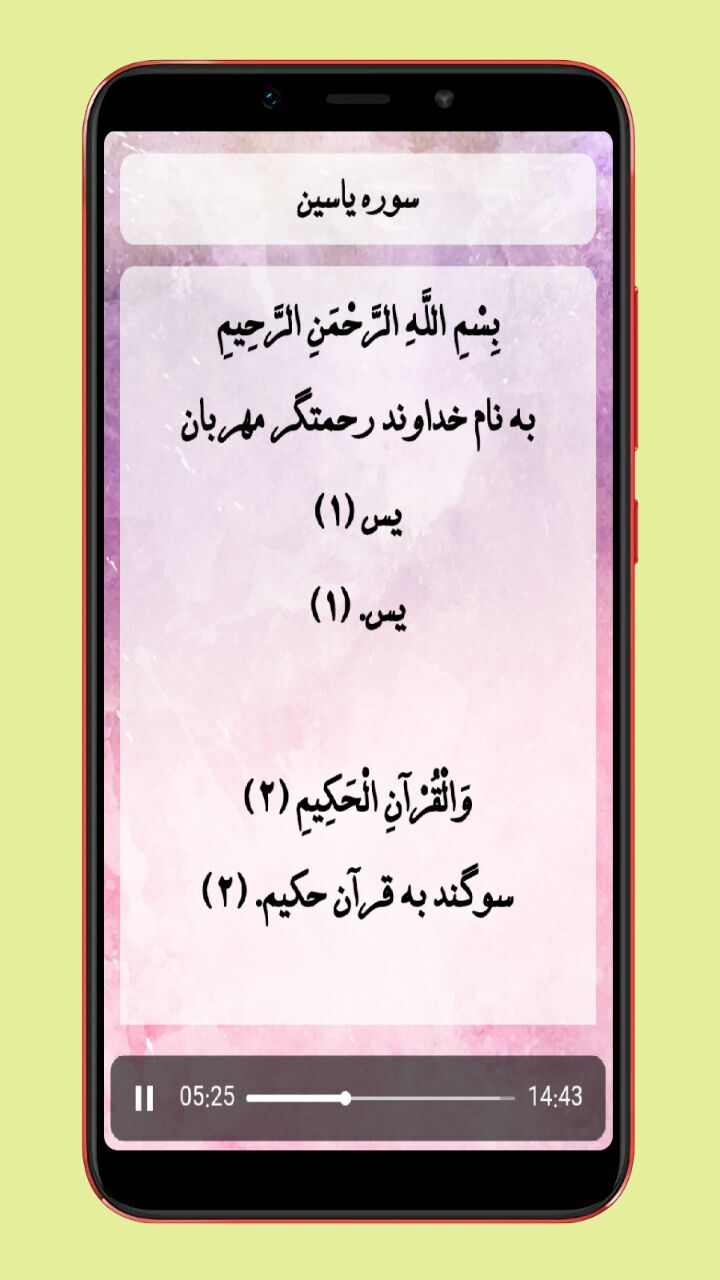 سوره یاسین
بِسْمِ اللَّهِ الرَّحْمَنِ الرَّحِيمِ
به نام خداوند رحمتگر مهربان
یس (۱)
یس. (۱)
وَالْقُرْآنِ الْحَكِيمِ (۲)
سوگند به قرآن حکیم. (۲)
05:25 14:43